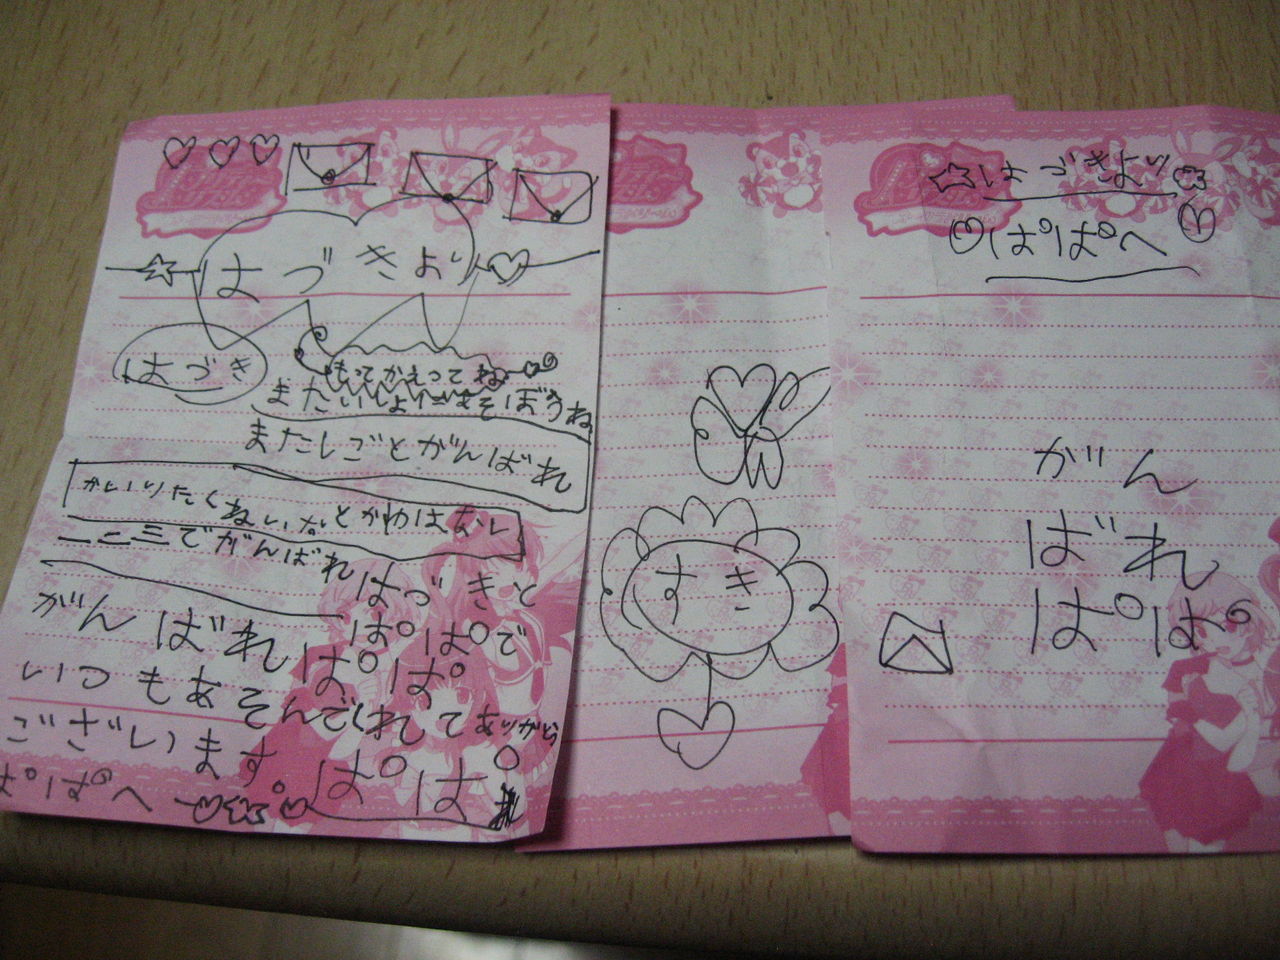 はづきより
はづき
もってかえってね
またいしょにあそぼうね
またしごとがんばれ
一二三でがんばれ
はづきと
がんばれぱぱで
いつもあそんでくれてありがとう
ございます。ぱぱ
ぱぱへ
すき
はづきより
ぱぱへ
がん
ばれ
ぱぱ